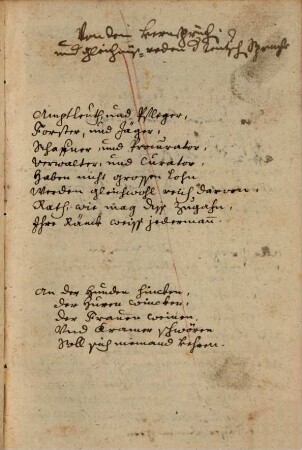 Von den Kernsprüch
und gleichnus-reden d Teutsch Sprache
Amptleuth und Pfleger,
Forster, und Jäger,
Schaffner und Procurator,
Verwalter, und Curator,
Haben nicht grossen Lohn
Werden gleichwohl reich darvon,
Rath: wie mag diss zugahn,
Ihre Ränck weisst jederman.
An der Hunden hincken,
der Huren wincken,
der Frauen weinen,
Und Kramer schwören
Soll sich niemand kehren.